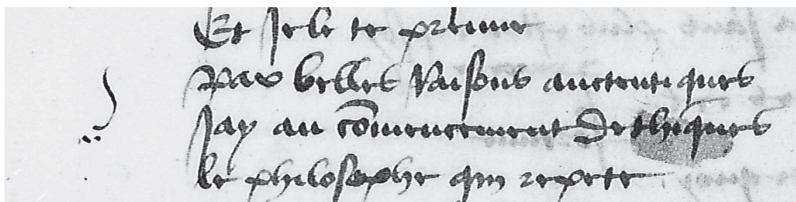 Et Je le te preuue
Par belles Raisons auctentiques
Jay au cōmencement dethiques
le philosophe qui repete